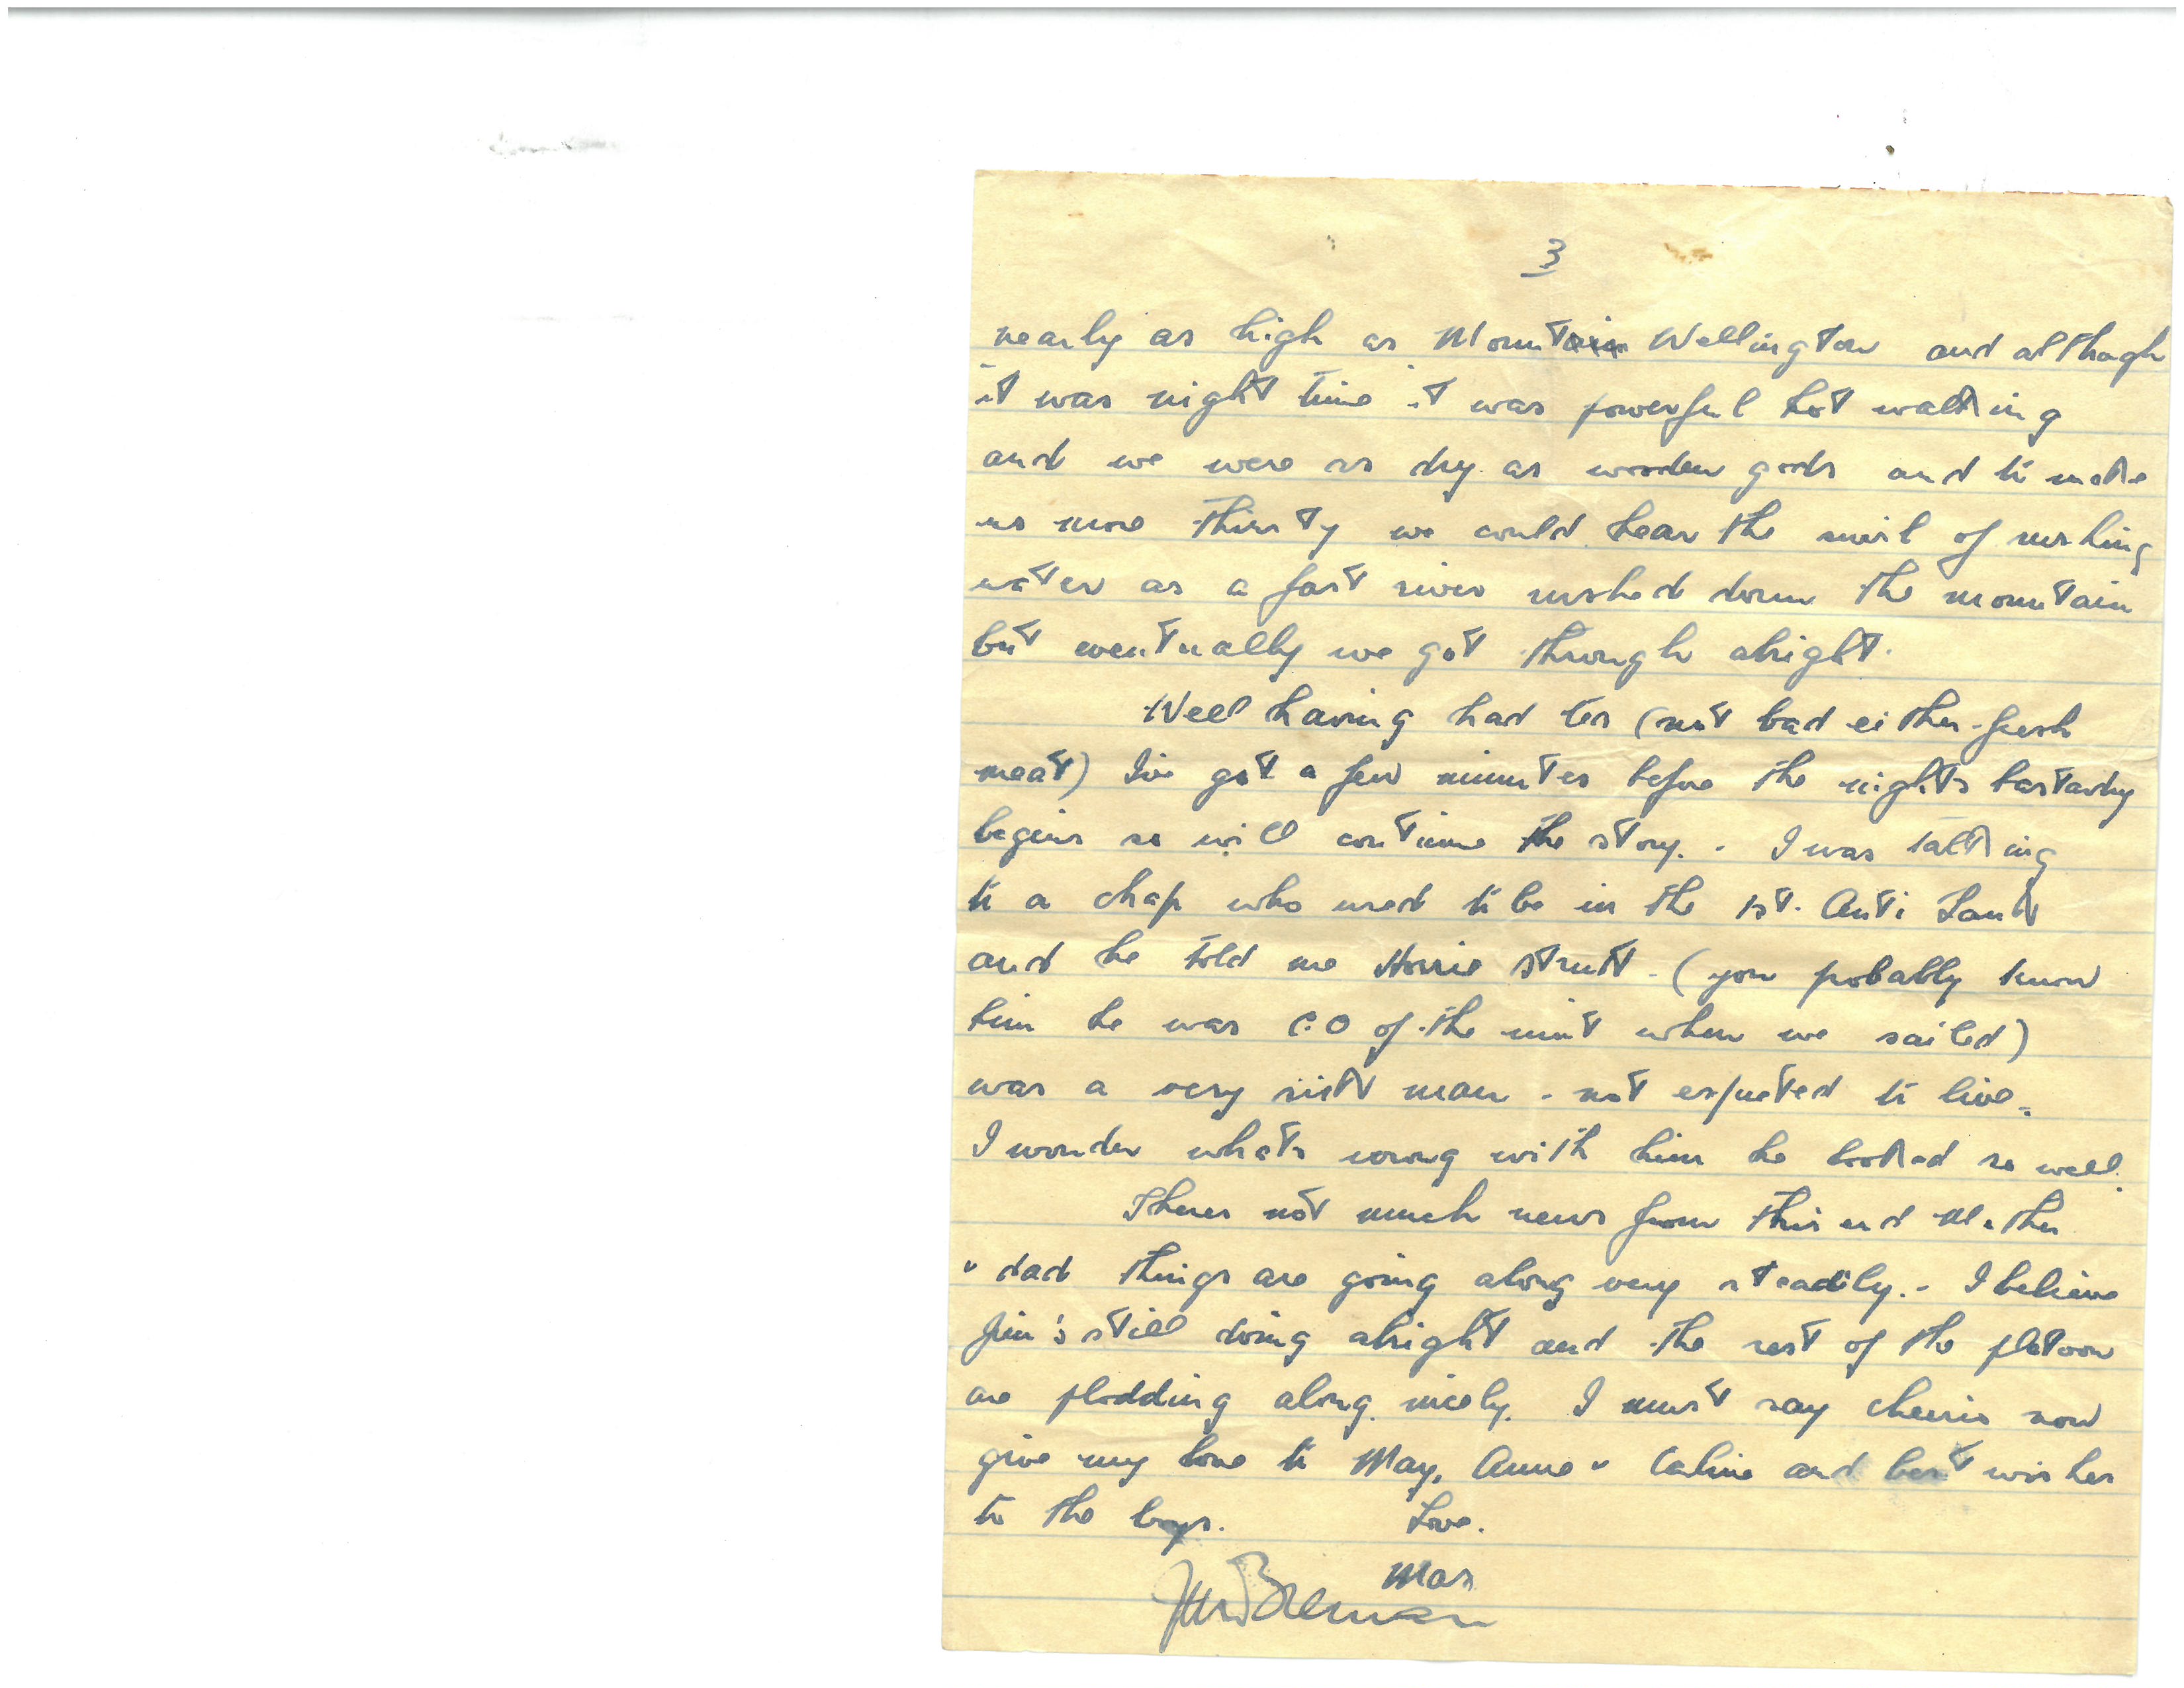 3
nearly as high as Mount Wellington and although
it was night time it was powerful hot walking
and we were as dry as wooden gods and to make
us more thirsty we could hear the swirl of rushing
water as a fast river rushed down the mountain
but eventually we got through alright.
Well having had tea (not bad either - fresh
meat) I've got a few minutes before the nights bastardry
begins so will continue the story. - I was talking
to a chap who used to be in the 1st. Anti Tank
and he told me Horrie Strutt - (you probably know
him he was C.O of the unit when we sailed)
was a very sick man - not expected to live.
I wonder whats wrong with him he looked so well.
Theres not much news from this end Mother
& dad things are going along very steadily. - I believe
Jim's still doing alright and the rest of the platoon
are plodding along nicely. I must say cheerio now
give my love to May, Anne & and best wishes
to the boys. Love.
Max